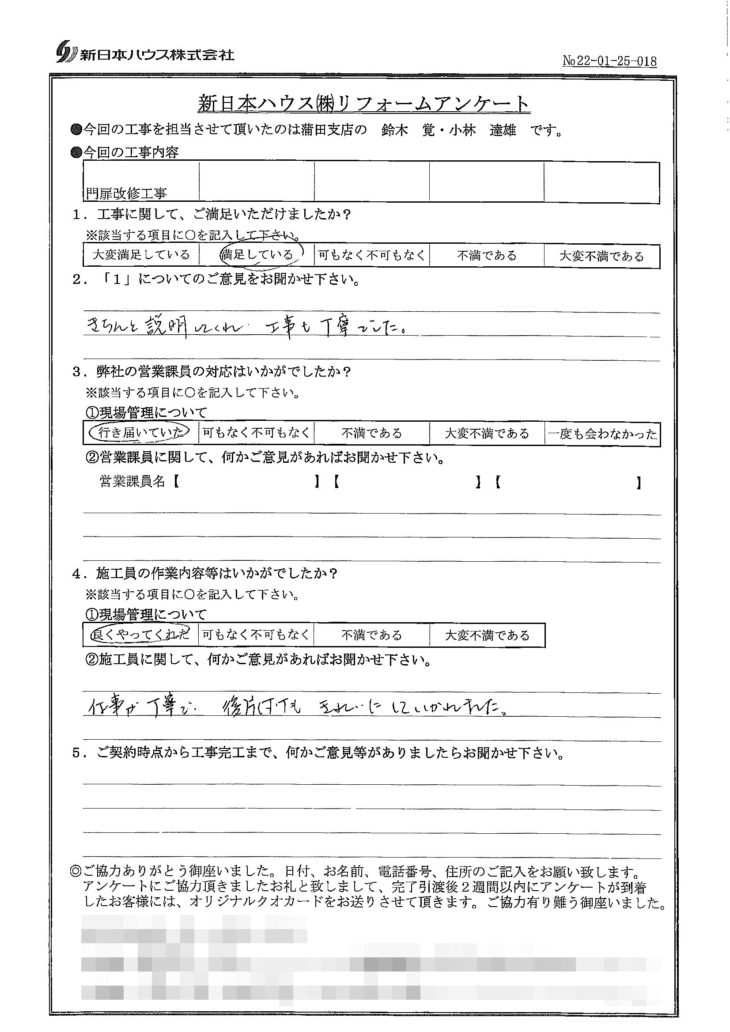 新日本ハウス株式会社
№22-01-25-018
新日本ハウス㈱リフォームアンケート
●今回の工事を担当させて頂いたのは蒲田支店の 鈴木 覚・小林 達雄 です。
●今回の工事内容
門扉改修工事
1．工事に関して、ご満足いただけましたか？
※該当する項目に○を記入して下さい。
大変満足している 満足している 可もなく不可もなく 不満である 大変不満である
2．「1」についてのご意見をお聞かせ下さい。
きちんと説明してくれ 工事も丁寧でした。
3．弊社の営業課員の対応はいかがでしたか？
※該当する項目に○を記入して下さい。
①現場管理について
行き届いていた 可もなく不可もなく 不満である 大変不満である 一度も会わなかった
②営業課員に関して、何かご意見があればお聞かせ下さい。
営業課員名【 】【 】【 】
4．施工員の作業内容等はいかがでしたか？
※該当する項目に○を記入して下さい。
①現場管理について
良くやってくれた 可もなく不可もなく 不満である 大変不満である
②施工員に関して、何かご意見があればお聞かせ下さい。
仕事が丁寧で 後片付けも きれいにしていかれました。
5．ご契約時点から工事完工まで、何かご意見等がありましたらお聞かせ下さい。
◎ご協力ありがとう御座いました。日付、お名前、電話番号、住所のご記入をお願い致します。
アンケートにご協力頂きましたお礼と致しまして、完了引渡後2週間以内にアンケートが到着
したお客様には、オリジナルクオカードをお送りさせて頂きます。ご協力有り難う御座いました。